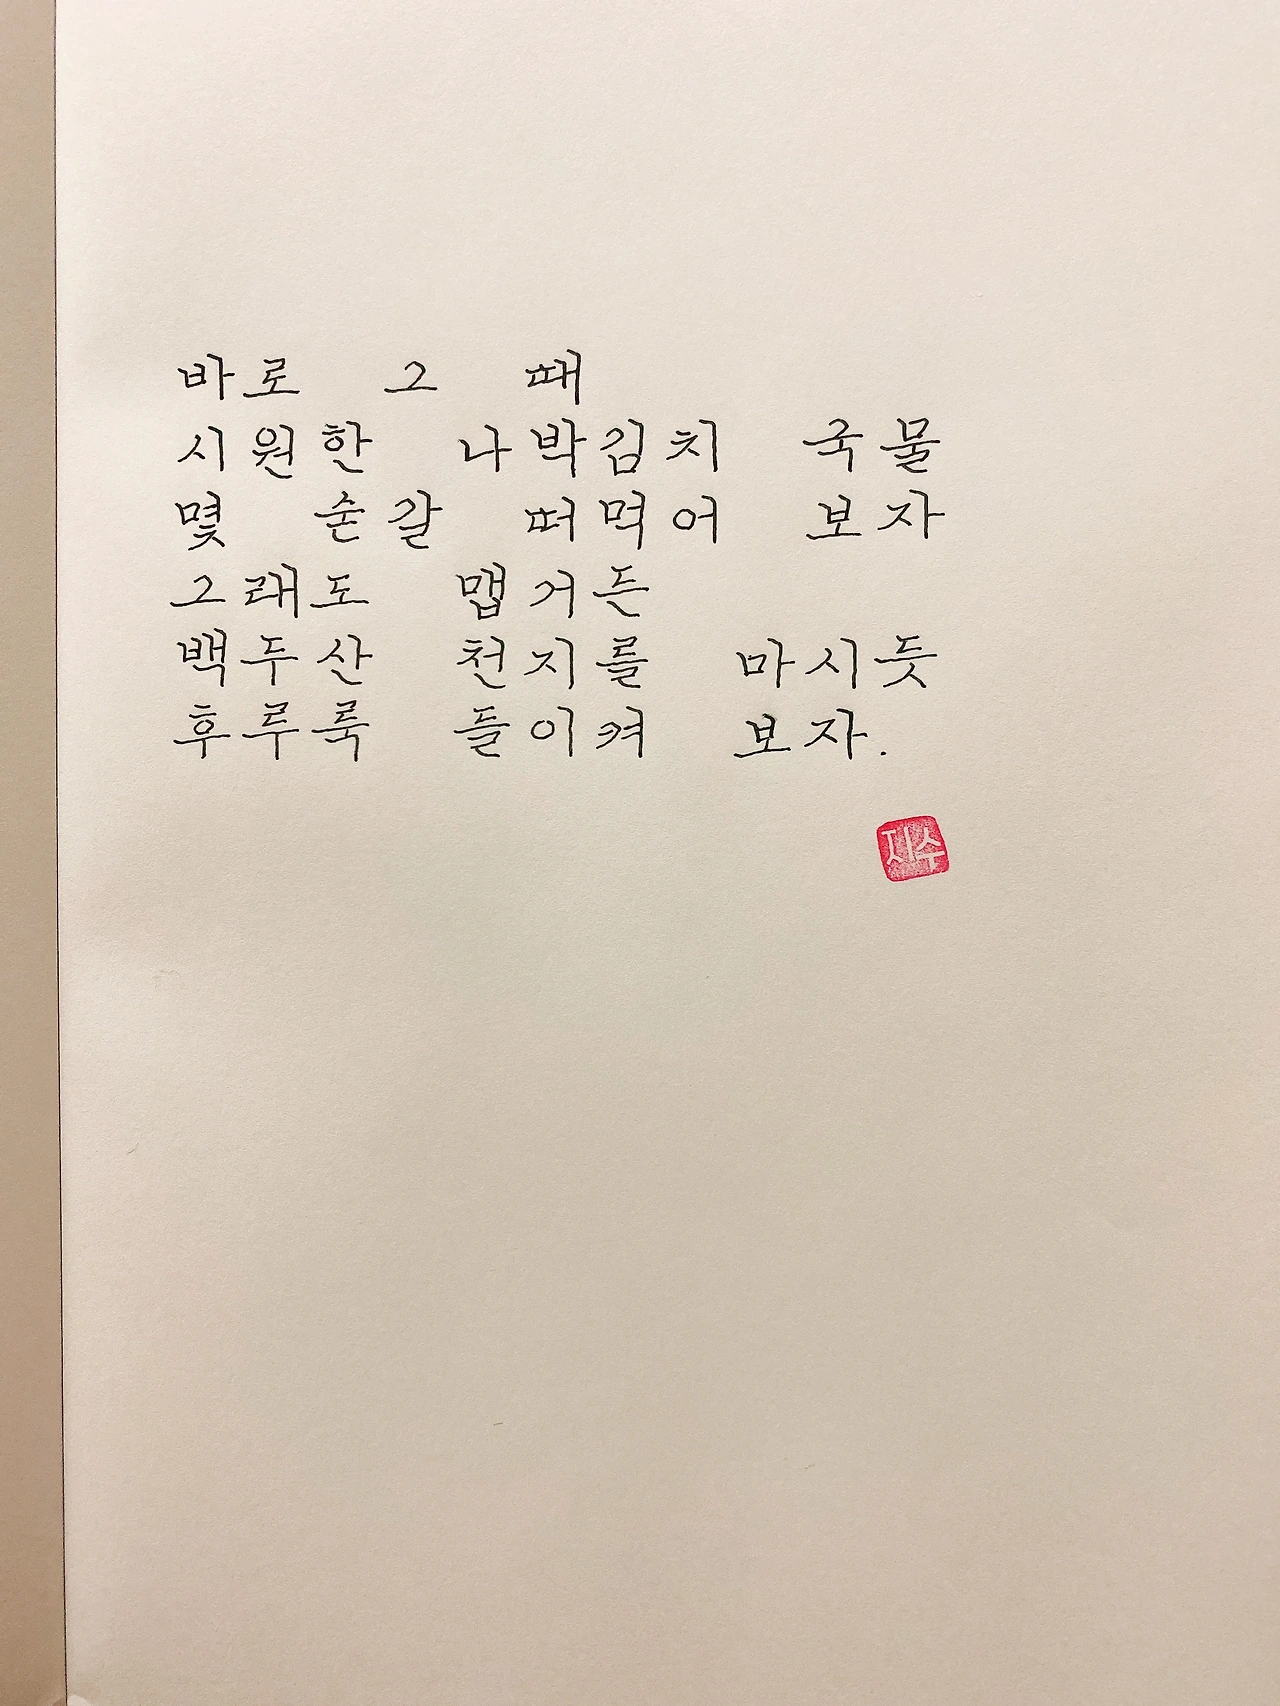 바로 그 때
시원한 나박김치 국물
몇 숟갈 떠먹어 보자
그래도 맵거든
백두산 천지를 마시듯
후루룩 들이켜 보자.
지수